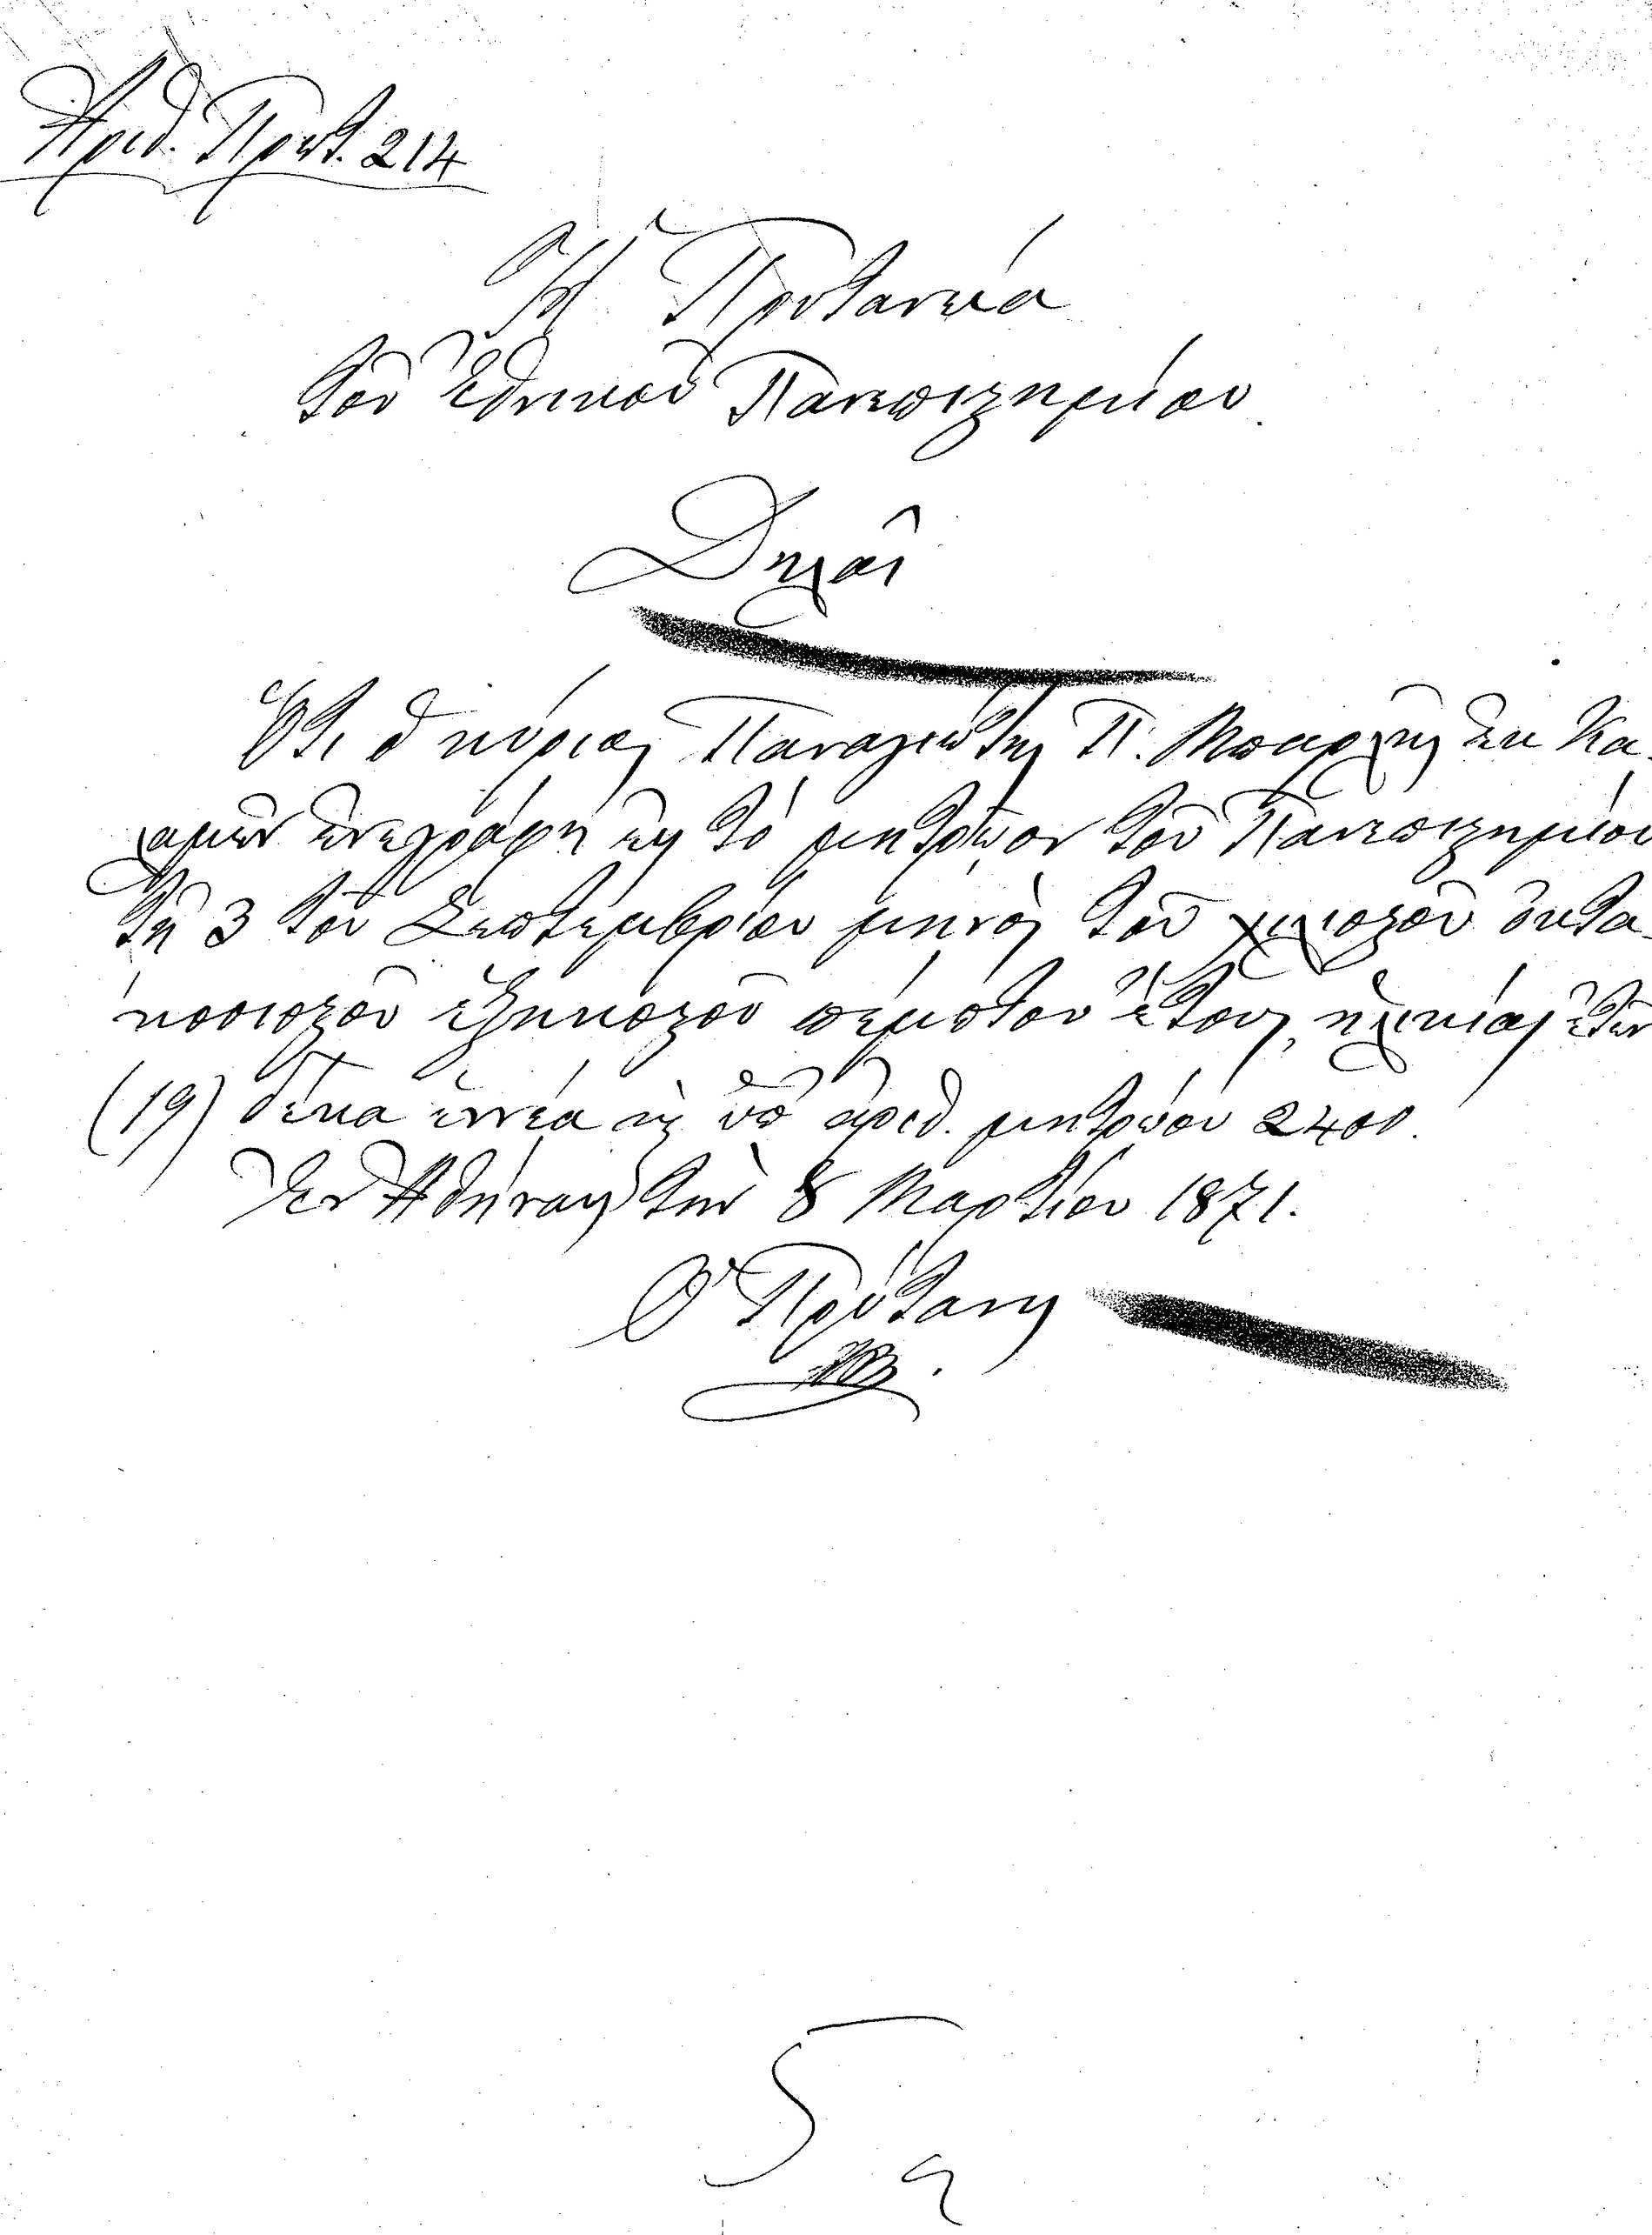 Ἀριθ. Πρωτ. 214
Ἡ Πρυτανεία
τοῦ Ἐθνικοῦ Πανεπιστημίου.
Δηλοῖ
Ὅτι ὁ κύριος Παναγιώτης Π. Μπαρλης ἐκ Κα-
λαμῶν ἐνεγράφη εἰς τὸ μητρῷον τοῦ Πανεπιστημίου
τῇ 3 τοῦ Σεπτεμβρίου μηνὸς τοῦ χιλιοστοῦ ὀκτα-
κοσιοστοῦ ἑξηκοστοῦ πέμπτου ἔτους, ἡλικίας ἐτῶν
(19) δέκα ἐννέα εἰς ὑπ' ἀριθ. μητρώου 2400.
Ἐν Ἀθήναις τὴν 8 Μαρτίου 1871.
Ὁ Πρύτανις
5